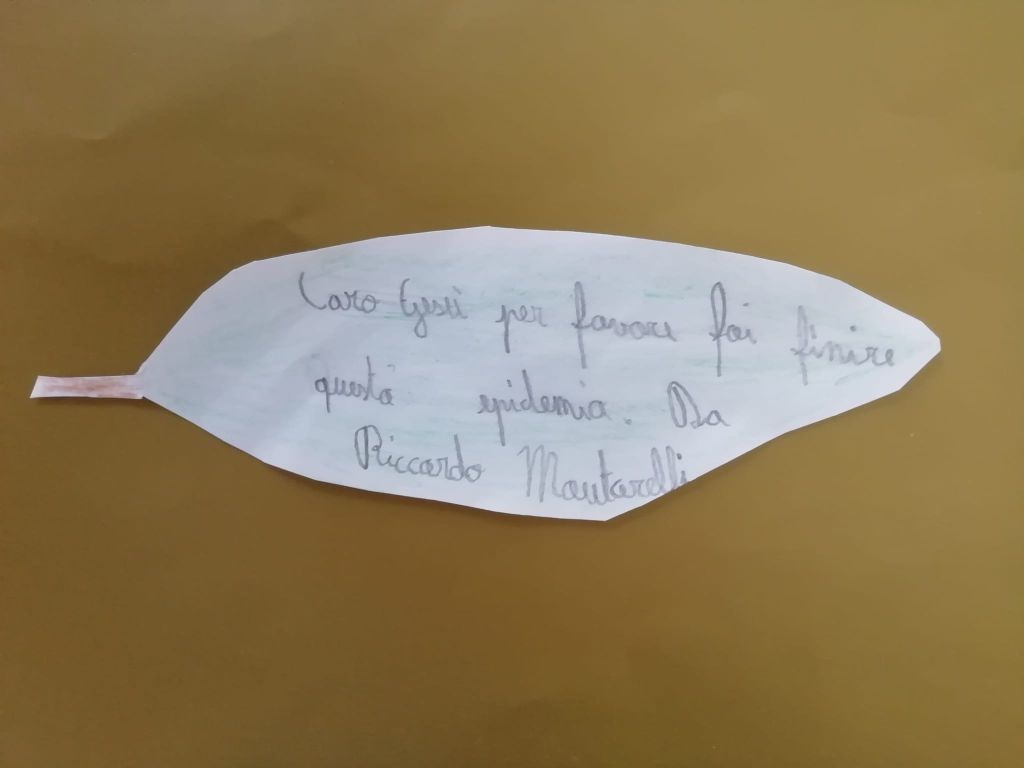 Caro Gesù per favore fai finire
questa epidemia. Da
Riccardo Mautarelli